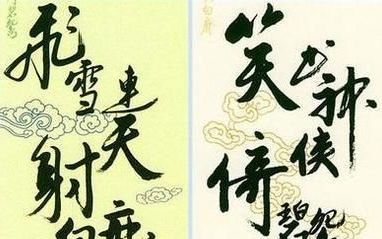 飛雪連天射白鹿
笑书神侠倚碧